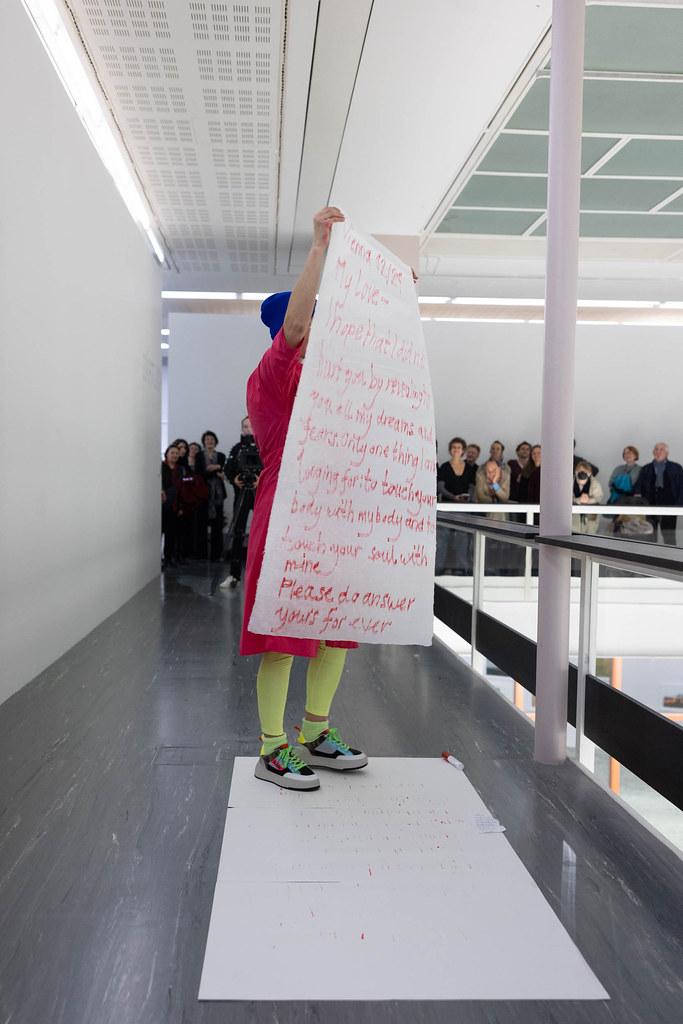 Vienna 12/23
My Love –
I hope that I did
hurt you by revealing
you all my dreams and
fears. only one thing I am
longing for: to touch your
body with my body and
touch your soul with
mine
Please do answer
yours for ever